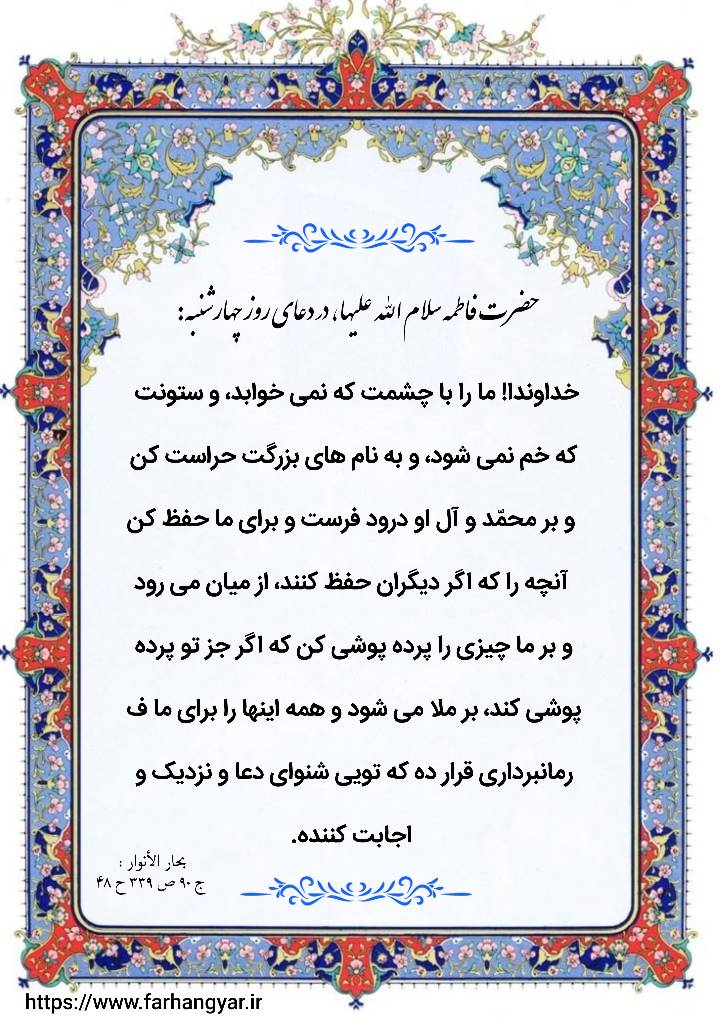 حضرت فاطمه سلام الله علیها، در دعای روز چهارشنبه:
خداوندا! ما را با چشمت که نمی خوابد، و ستونت
که خم نمی شود، و به نام های بزرگت حراست کن
و بر محمّد و آل او درود فرست و برای ما حفظ کن
آنچه را که اگر دیگران حفظ کنند، از میان می رود
و بر ما چیزی را پرده پوشی کن که اگر جز تو پرده
پوشی کند، بر ملا می شود و همه اینها را برای ما ف
رمانبرداری قرار ده که تویی شنوای دعا و نزدیک و
اجابت کننده.
بحار الأنوار :
ج ۹۰ ص ۳۳۹ ح ۴۸
https://www.farhangyar.ir